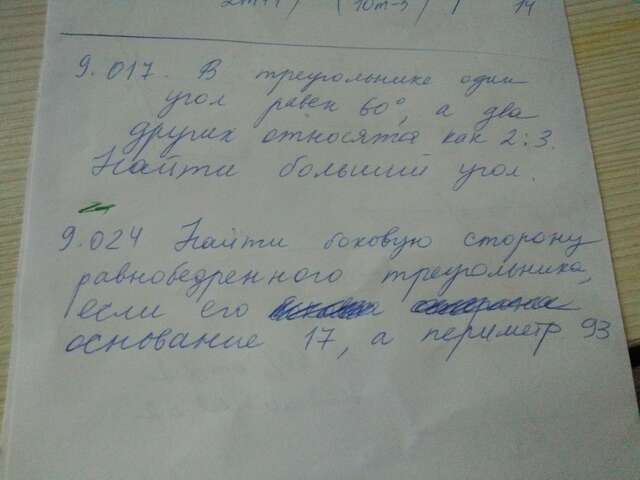 9.017. В треугольнике один
угол равен 60°, а два
других относятся как 2:3.
Найти больший угол.
9.024 Найти боковую сторону
равнобедренного треугольника,
если его
основание 17, а периметр 93